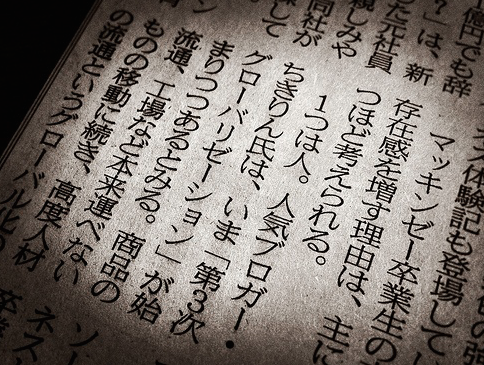 億円でも辞
？」は、新
た元社員
親しみや
同社が
して
体験記も登場して
マッキンゼー卒業生の
存在感を増す理由は、主に
つほど考えられる。
1つは人。人気ブロガー・
ちきりん氏は、いま「第3次
グローバリゼーション」が始
まりつつあるとみる。商品の
流通、工場など本来運べない
ものの移動に続き、高度人材
の流通というグローバル化の